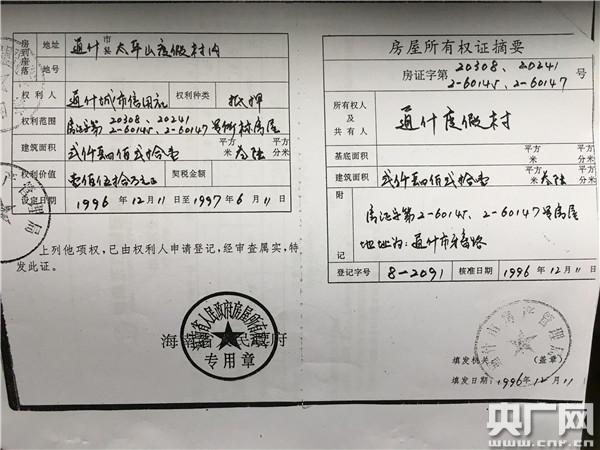 房屋座落 地址 通什市县 太平山度假村内
地号
权利人 通什城市信用社 权利种类 抵押
权利范围 房证字第20308、20241 2-60145、2-60147号所标房屋
建筑面积 弍仟肆佰弍拾壹 平方米 叁陆 平方分米
权利价值 壹佰伍拾万元正 契税金额
设定日期 1996年12月11日至1997年6月11日
上列他项权,已由权利人申请登记,经审查属实,特
发此证。
海南省人民政府
海南省人民政府房屋所有权
专用章
房屋所有权证摘要
房证字第 20308、20241 号
2-60145、2-60147
所有权人及共有人 通什度假村
基底面积 平方米 平方分米
建筑面积 弍仟肆佰弍拾壹 平方米 叁陆 平方分米
附记 房证字第2-60145、2-60147号房屋
地址为:通什市
登记字号 8-2091 核准日期 1996年12月11日
通什市房产管理局
填发机关 (盖章)
填发日期:1996年12月11
央广网
www.cnr.cn